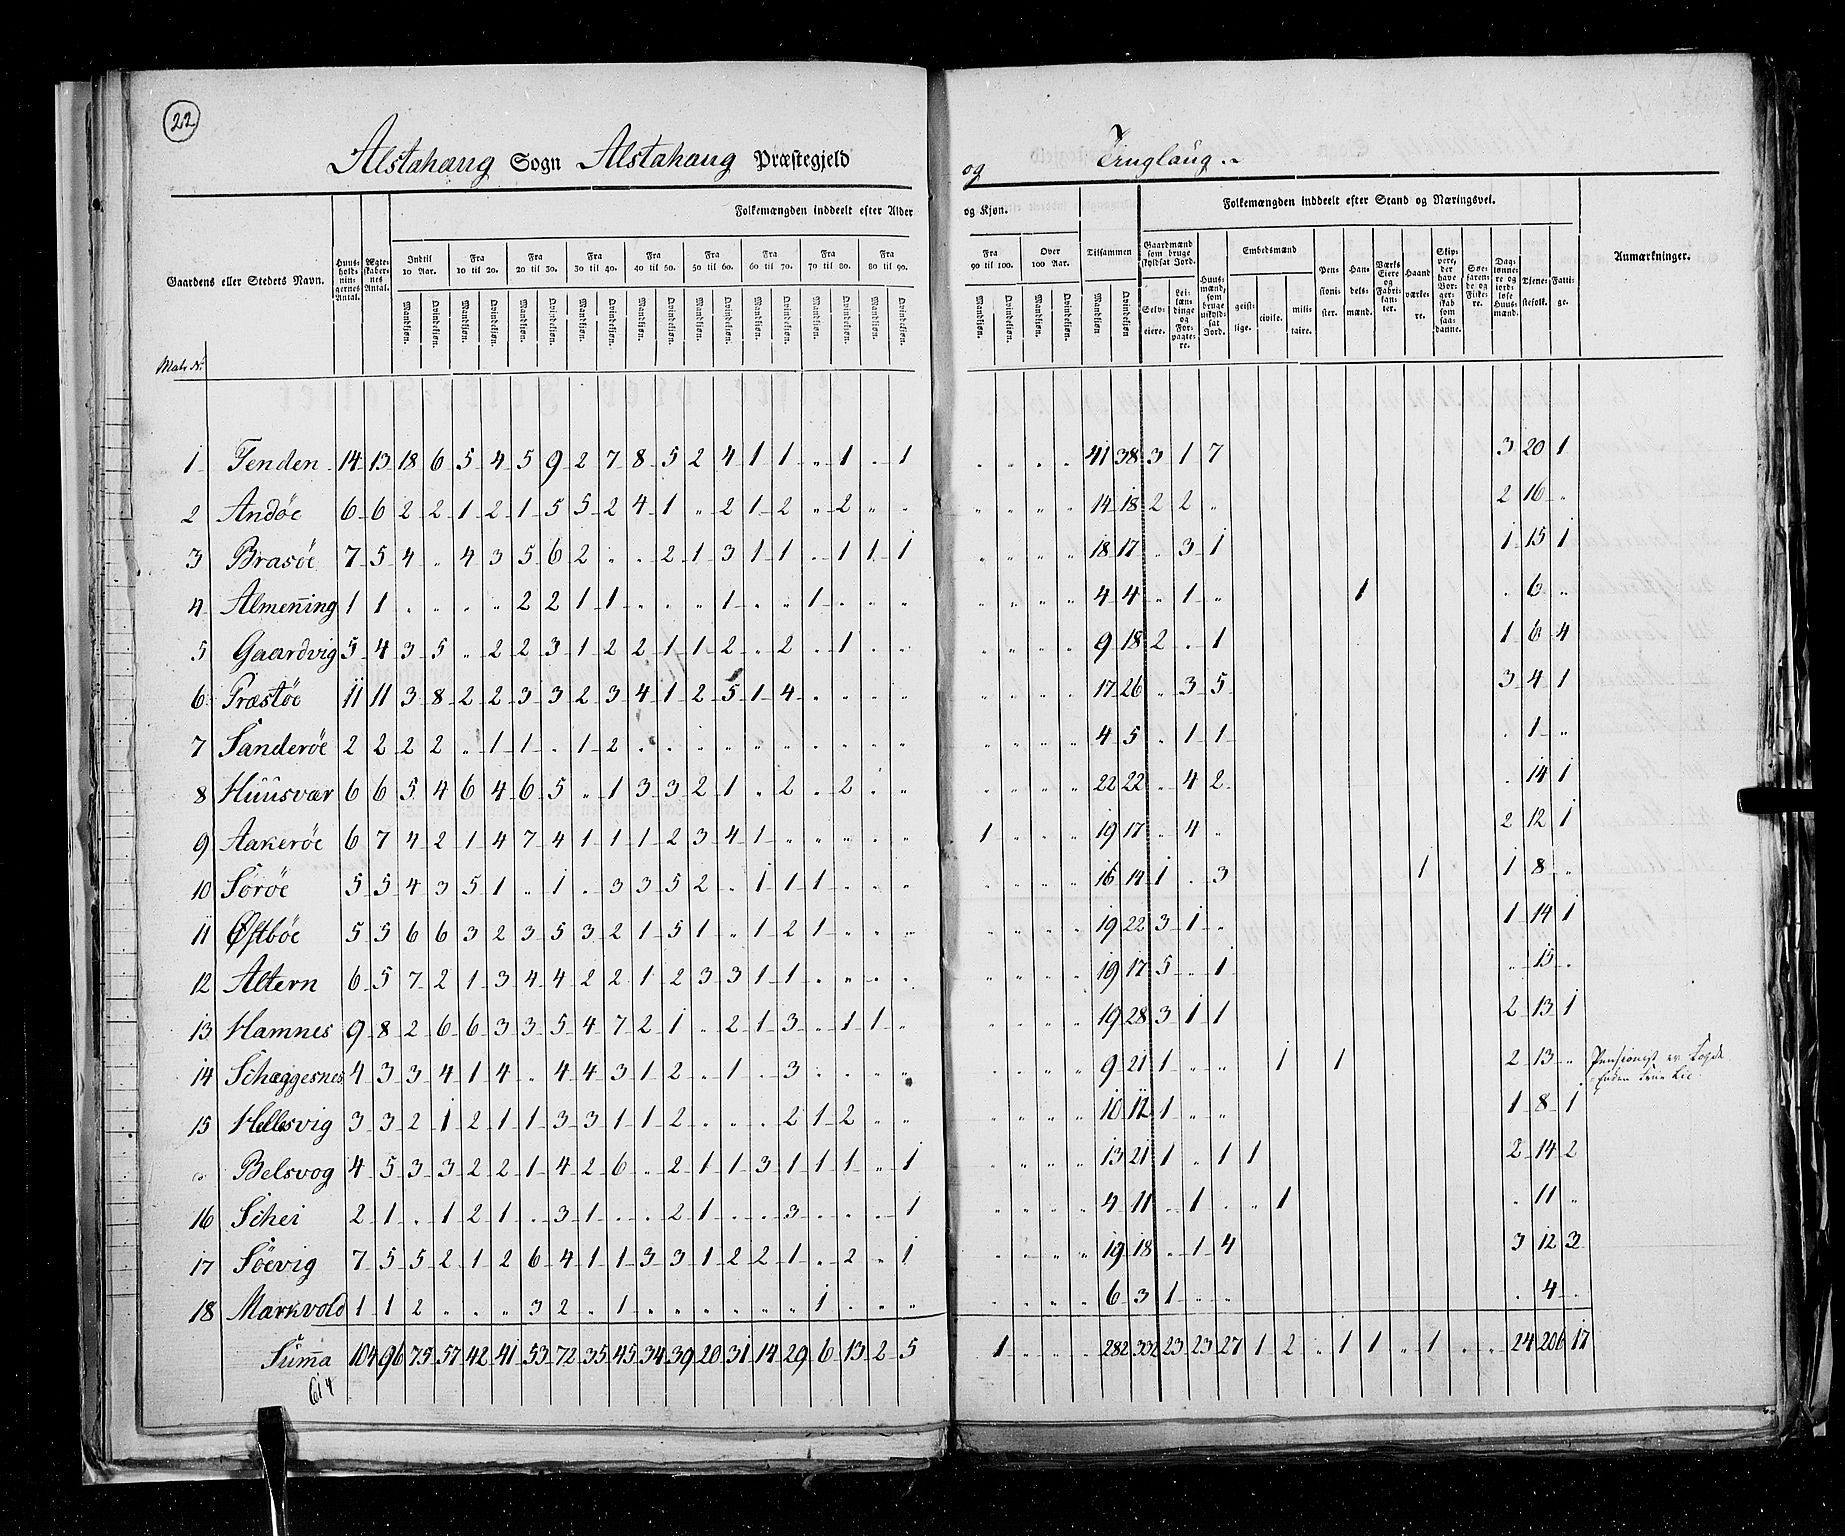 22
Alstahaug Sogn Alstahaug Præstegjeld og Tinglaug.
Gaardens eller Stedets Navn. Huus-holdnin-gernes Antal. Ægte-skaber-nes Antal. Folkemængden inddeelt efter Alder og Kjøn. Folkemængden inddeelt efter Stand og Næringsvei. Anmærkninger.
Indtil 10 Aar. Fra 10 til 20. Fra 20 til 30. Fra 30 til 40. Fra 40 til 50. Fra 50 til 60. Fra 60 til 70. Fra 70 til 80. Fra 80 til 90. Fra 90 til 100. Over 100 Aar. Tilsammen Gaardmænd som bruge skyldsat Jord. Huus-mænd, som bruge uskyld-sat Jord. Embedsmænd Pen-sioni-ster. Han-dels-mænd. Værks Eiere og Fabri-kan-ter. Haand-værke-re. Skip-pere, der have Bor-ger-skab som saa-danne. Søe-faren-de og Fiske-re. Dag-lønne-re og jord-løse Huus-mænd. Tjene-stefolk. Fatti-ge.
Mandkjøn. Qvindekjøn. Mandkjøn. Qvindekjøn. Mandkjøn. Qvindekjøn. Mandkjøn. Qvindekjøn. Mandkjøn. Qvindekjøn. Mandkjøn. Qvindekjøn. Mandkjøn. Qvindekjøn. Mandkjøn. Qvindekjøn. Mandkjøn. Qvindekjøn. Mandkjøn. Qvindekjøn. Mandkjøn. Qvindekjøn. Mandkjøn Qvindekjøn Selv-eiere. Lei-læn-dinge og For-pagte-re. geist-lige. civile. mili-taire.
Matr. Nr.
1 Tenden 14 13 18 6 5 4 5 9 2 7 8 5 2 4 1 1 „ 1 „ 1 „ „ „ „ 41 38 3 1 7 3 20 1
2 Andöe 6 6 2 2 1 2 1 5 5 2 4 1 „ 2 1 2 „ 2 „ „ „ „ „ „ 14 18 2 2 „ 2 16 „
3 Brasöe 7 5 4 „ 4 3 5 6 2 „ „ 2 1 3 1 1 „ 1 1 1 „ „ „ „ 18 17 „ 3 1 1 15 1
4 Almening 1 1 „ „ „ „ 2 2 1 1 „ „ „ 1 „ „ 1 „ „ „ „ „ „ „ 4 4 „ 1 „ 1 „ 6 „
5 Gaardvig 5 4 3 5 „ 2 2 3 1 2 2 1 1 2 „ 2 „ 1 „ „ „ „ „ „ 9 18 2 „ 1 1 6 4
6 Præstöe 11 11 3 8 2 2 3 3 2 3 4 1 2 5 1 4 „ „ „ „ „ „ „ „ 17 26 „ 3 5 3 4 1
7 Sanderöe 2 2 2 2 „ 1 1 „ 1 2 „ „ „ „ „ „ „ „ „ „ „ „ „ „ 4 5 „ 1 1 „ 1 „
8 Huusvær 6 6 5 4 6 4 6 5 „ 1 3 3 2 1 „ 2 „ 2 „ „ „ „ „ „ 22 22 „ 4 2 „ 14 1
9 Aakeröe 6 7 4 2 1 4 7 4 1 1 1 2 3 4 1 „ „ „ „ „ 1 „ „ „ 19 17 „ 4 „ 2 12 1
10 Toröe 5 5 4 3 5 1 „ 1 „ 3 3 5 2 „ 1 1 1 „ „ „ „ „ „ „ 16 14 1 „ 3 1 1 8 „
11 Østböe 5 5 6 6 3 2 3 5 3 2 1 5 1 „ 1 2 1 „ „ „ „ „ „ „ 19 22 3 1 „ 1 14 1
12 Altern 6 5 7 2 1 3 4 4 2 2 1 2 3 3 1 1 „ „ „ „ „ „ „ „ 19 17 5 „ 1 „ 15 „
13 Hamnes 9 8 2 6 6 3 3 5 4 7 2 1 „ 2 1 3 „ 1 1 „ „ „ „ „ 19 28 3 1 1 2 13 1
14 Schæggesnes 4 3 3 4 1 4 „ 4 4 3 1 2 „ 1 „ 3 „ „ „ „ „ „ „ „ 9 21 1 „ „ 1 1 2 13 „ Pensionist er Fogde
Enken Frue Lie.
15 Hellesvig 3 3 2 1 2 1 1 3 3 1 1 2 „ „ „ 2 1 2 „ „ „ „ „ „ 10 12 1 „ „ 1 8 1
Belsvog 4 5 3 3 2 2 1 4 2 6 „ 2 1 1 3 1 1 1 „ 1 „ „ „ „ 13 21 1 „ 1 1 2 14 2
16 Schei 2 1 „ 1 2 1 „ 3 1 „ „ 2 1 „ „ 3 „ „ „ 1 „ „ „ „ 4 11 „ 1 „ „ 1 „ 11 „
17 Söevig 7 5 5 2 1 2 6 4 1 1 3 3 1 2 2 1 „ 2 „ 1 „ „ „ „ 19 18 „ 1 4 3 12 3
18 Markvold 1 1 2 „ „ „ 3 2 „ 1 „ „ „ „ „ „ 1 „ „ „ „ „ „ „ 6 3 1 „ „ „ 4 „
Suma 104 96 75 57 42 41 53 72 35 45 34 39 20 31 14 29 6 13 2 5 1 „ „ „ 282 332 23 23 27 1 2 „ 1 1 „ 1 „ „ 24 206 17
614